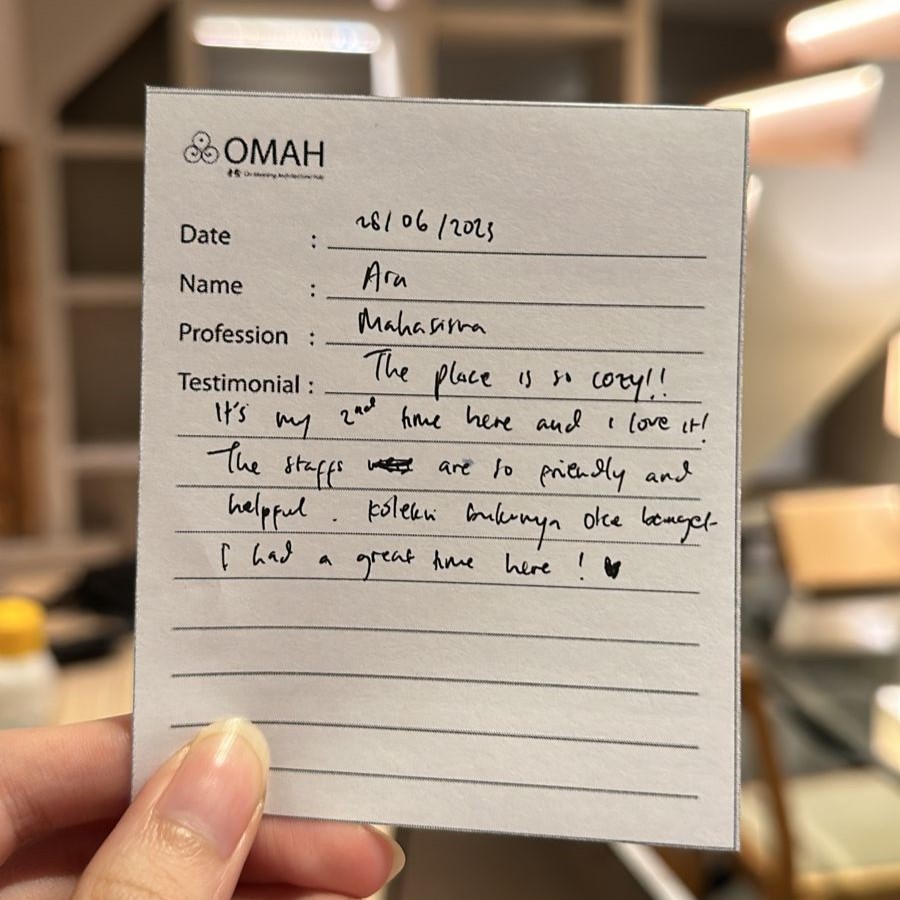 OMAH
Date : 28/06/2023
Name : Ara
Profession : Mahasiswa
Testimonial : The place is so cozy!!
It's my 2nd time here and i love it!
The staffs are so friendly and
helpful. Koleksi bukunya oke banget
I had a great time here! ♥